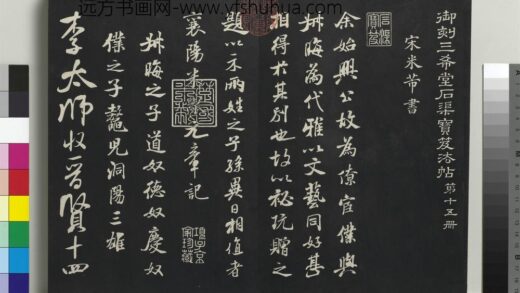 远方书画网- www.yfshuhua.com
御刻三希堂石渠寶笈法帖 第十五冊
宋米芾書
余始興公故為僚宦僕與
叔晦為代雅以文藝同好甚
相得於其別也故以秘玩贈之
題以示兩姓之子孫異日相值者
襄陽米元章記
項子京家珍藏
叔晦之子道奴德奴慶奴
僕之子鼇兒洞陽三雄
李太師收晉賢十四